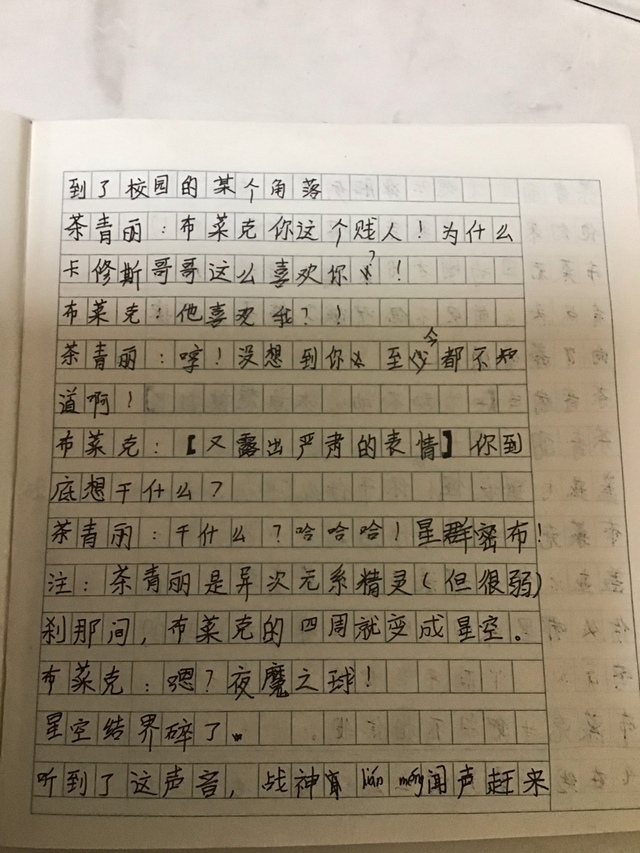 到了校园的某个角落
茶青丽：布莱克你这个贱人！为什么
卡修斯哥哥这么喜欢你？！
布莱克：他喜欢我？！
茶青丽：哼！没想到你 至今都不知
道啊！
布莱克：【又露出严肃的表情】你到
底想干什么？
茶青丽：干什么？哈哈哈！星群密布！
注：茶青丽是异次元系精灵（但很弱）
刹那间，布莱克的四周就变成星空。
布莱克：嗯？夜魔之球！
星空结界碎了。
听到了这声音，战神 lián méng闻声赶来